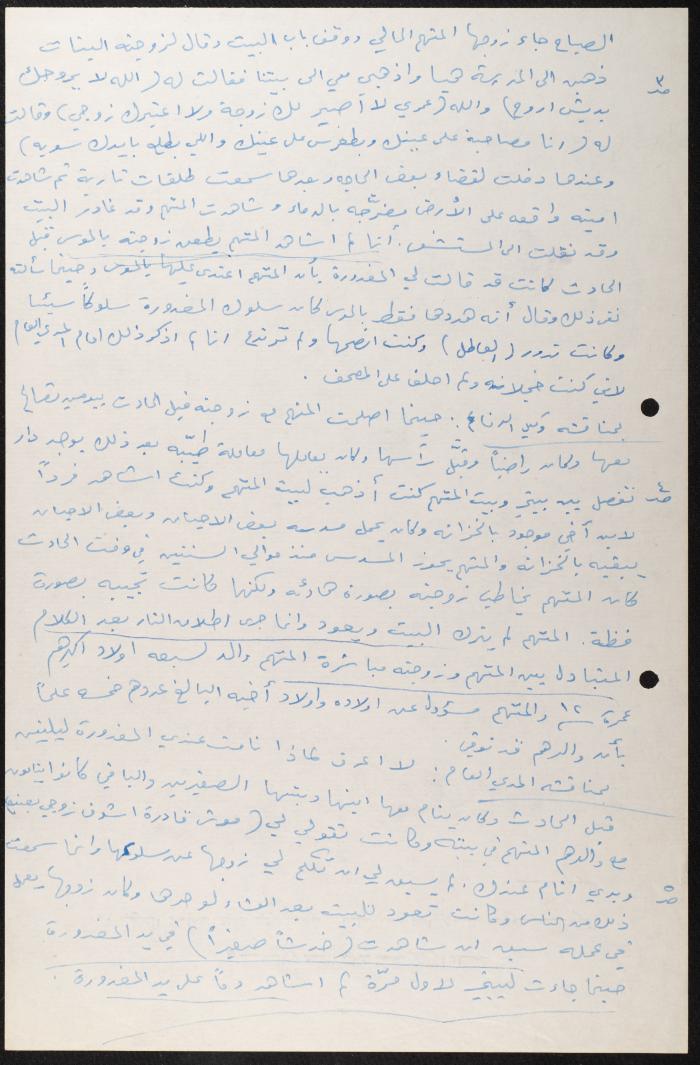 الصباح جاء زوجها المتهم الحالي ووقف باب البيت وقال لزوجته البنات
ص٣ ذهبن الى المدرسة هيا واذهبي معي الى بيتنا فقالت له ( الله لا يروجك
بديش اروح ) والله ( عمري لا أصير لك زوجة ولا اعتبرك زوجي ) وقالت
له ( انا مصاحبة على عينك وبطفرس على عينك واللي بطلع بايدك سويه )
وعندها دخلت لقضاء بعض الحاجه وبعدها سمعت طلقات نارية ثم شاهدت
امينه واقعه على الأرض مضرّجه بالدماء وشاهدت المتهم وقد غادر البيت
وقد نقلت الى المستشفى . أنا لم اشاهد المتهم يطعن زوجته بالموس قبل
الحادث كانت قد قالت لي المغدورة بأن المتهم اعتدى عليها بالموس وحينما سألته
نفى ذلك وقال أنه هددها فقط بالموس كان سلوك المغدورة سلوكاً سيئا
وكانت تدور ( العاطل ) وكنت انصحها ولم ترتدع انا لم اذكر ذلك امام المدعي العام
لاني كنت خجلانه ولم احلف على المصحف .
بمناقشة وكيل الدفاع : حينما اصلحت المتهم مع زوجته قبل الحادث بيومين تصالح
معها وكان راضياً وقبَّل رأسها وكان يعاملها معاملة طيّبه بعد ذلك يوجد دار
ص٤ تفصل بين بيتي وبيت المتهم كنت أذهب لبيت المتهم وكنت اشاهد فرداً
لابن أخي موجود بالخزانه وكان يحمل مسدسه بعض الاحيان وبعض الاحيان
يبقيه بالخزانه والمتهم يحوز المسدس منذ حوالي السنتين في وقت الحادث
كان المتهم يخاطب زوجته بصورة هادئه ولكنها كانت تجيبه بصورة
فظة . المتهم لم يترك البيت ويعود وانما جرى اطلاق النار بعد الكلام
المتبادل بين المتهم وزوجته مباشرة المتهم والد لسبعه اولاد اكبرهم
عمره ١٢ والمتهم مسؤول عن اولاده واولاد أخيه البالغ عددهم خمسه علماً
بأن والدهم قد توفي .
بمناقشة المدعي العام : لا اعرف لماذا نامت عندي المغدورة ليلتين
قبل الحادث وكان ينام معها ابنها وبنتها الصغيرين والباقي كانوا ينامون
مع والدهم المتهم في بيته وكانت تقولي لي ( موش قادرة اشوف زوجي
ص٥ وبدي انام عندك . لم يسبق لي ان تكلم لي زوجها عن سلوكها وانما سمعت
ذلك من الناس وكانت تعود للبيت بعد العشاء لوحدها وكان زوجها يعمل
في عمله سبق ان شاهدت ( خدشاً صغيراً ) في يد المغدورة
حينما جاءت لبيتي لاول مرّة لم اشاهد دماً على يد المغدورة .